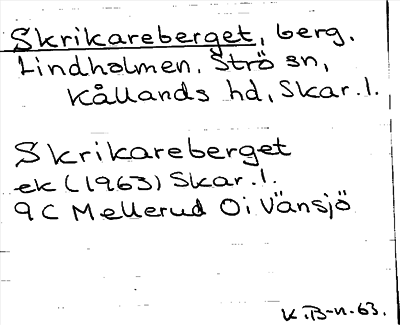 Skrikareberget, berg.
Lindholmen. Strö sn,
Kållands hd, Skar.l.
Skrikareberget
ek (1963) Skar.l.
9C Mellerud Oi Vänsjö
K.B-n.63.